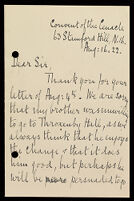 Convent of the Cenacle
63 Stamford Hill, N.16.
Aug: 16. 22.
Dear Sir,
Thank you for your
letter of Aug: 4th. We are sorry
that my brother was unwilling
to go to Throxenby Hall, as we
always think that he enjoys
the change & that it does
him good, but perhaps he
will be more persuaded by